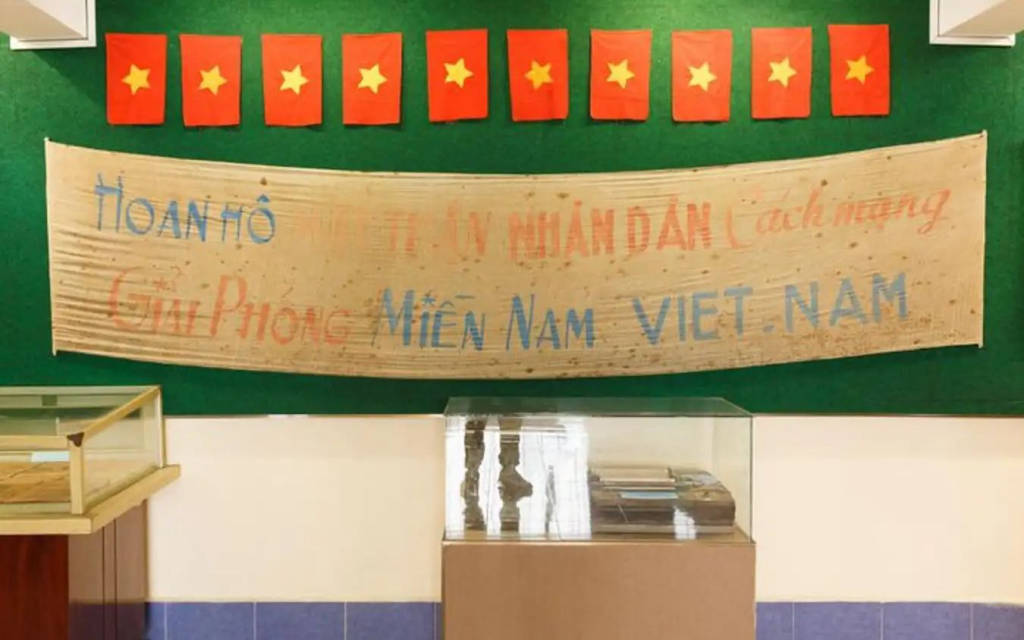 HOAN HÔ NHÂN DÂN Cách mạng
GIẢI PHÓNG MIỀN NAM VIET.NAM